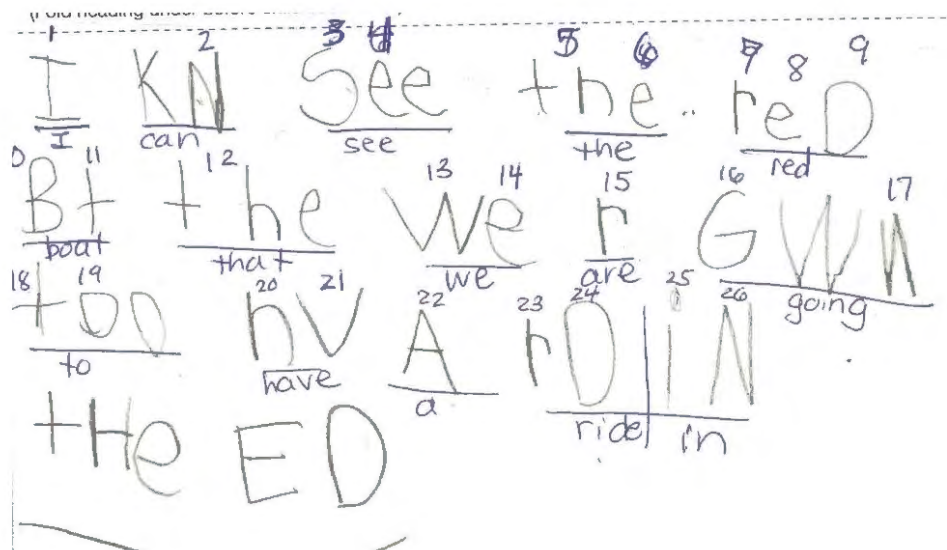 2 3 4 5 6 7 8 9
I KN See the reD
I can see the red
11 12 13 14 15 16 17
Bt the We r G W N
boat that we are going
18 19 20 21 22 23 24 25 26
too hV A rD iN
to have a ride in
tHe ED